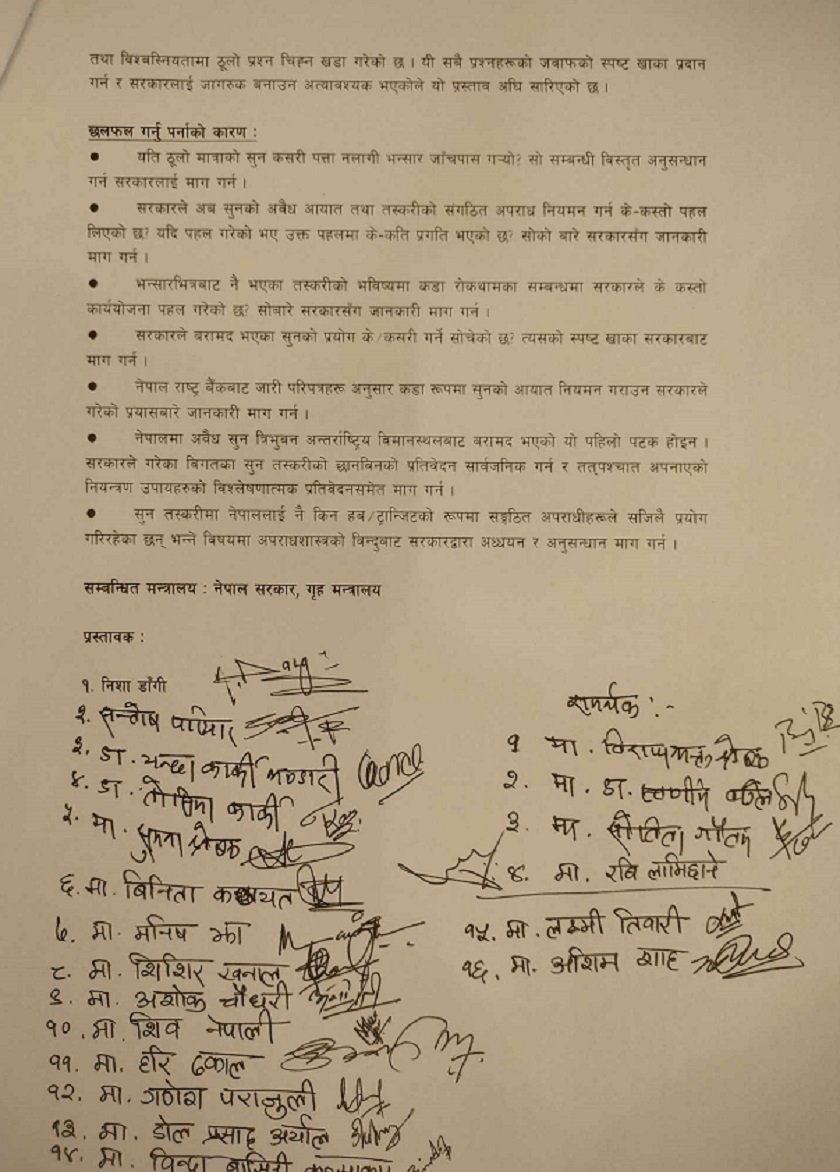 तथा विश्वस्नियतामा ठूलो प्रश्न चिह्न खडा गरेको छ । यी सबै प्रश्नहरूको जवाफको स्पष्ट खाका प्रदान
गर्न र सरकारलाई जागरुक बनाउन अत्यावश्यक भएकोले यो प्रस्ताव अघि सारिएको छ ।
छलफल गर्नु पर्नाको कारण :
● यति ठूलो मात्राको सुन कसरी पत्ता नलागी भन्सार जाँचपास गर्‍यो? सो सम्बन्धी विस्तृत अनुसन्धान
गर्न सरकारलाई माग गर्न ।
● सरकारले अब सुनको अवैध आयात तथा तस्करीको संगठित अपराध नियमन गर्न के-कस्तो पहल
लिएको छ? यदि पहल गरेको भए उक्त पहलमा के-कति प्रगति भएको छ? सोको बारे सरकारसँग जानकारी
माग गर्न ।
● भन्सारभित्रबाट नै भएका तस्करीको भविष्यमा कडा रोकथामका सम्बन्धमा सरकारले के कस्तो
कार्ययोजना पहल गरेको छ? सोबारे सरकारसँग जानकारी माग गर्न ।
● सरकारले बरामद भएका सुनको प्रयोग के/कसरी गर्ने सोचेको छ? त्यसको स्पष्ट खाका सरकारबाट
माग गर्न ।
● नेपाल राष्ट्र बैंकबाट जारी परिपत्रहरू अनुसार कडा रूपमा सुनको आयात नियमन गराउन सरकारले
गरेको प्रयासबारे जानकारी माग गर्न ।
● नेपालमा अवैध सुन त्रिभुवन अन्तर्राष्ट्रिय विमानस्थलबाट बरामद भएको यो पहिलो पटक होइन ।
सरकारले गरेका बिगतका सुन तस्करीको छानबिनको प्रतिवेदन सार्वजनिक गर्न र तत्पश्चात अपनाएको
नियन्त्रण उपायहरुको विश्लेषणात्मक प्रतिवेदनसमेत माग गर्न ।
● सुन तस्करीमा नेपाललाई नै किन हब/ट्रान्जिटको रूपमा सङ्गठित अपराधीहरूले सजिलै प्रयोग
गरिरहेका छन् भन्ने विषयमा अपराधशास्त्रको विन्दुबाट सरकारद्वारा अध्ययन र अनुसन्धान माग गर्न ।
सम्बन्धित मन्त्रालय : नेपाल सरकार, गृह मन्त्रालय
प्रस्तावक :
१. निशा डाँगी
२.
३. डा. कार्की भण्डारी
४. डा. तोसिमा कार्की
५. मा. सुमना श्रेष्ठ
६. मा. बिनिता कठायत
७. मा. मनिष झा
८. मा. शिशिर खनाल
९. मा. अशोक चौधरी
१०. मा. शिव नेपाली
११. मा. हरि ढकाल
१२. मा. गणेश पराजुली
१३. मा. डोल प्रसाद अर्याल
१४. मा. विन्दा
समर्थक :-
१ मा. विराजभक्त श्रेष्ठ
२. मा. डा. स्वर्णिम वाग्ले
३. मा. सोविता गौतम
४. मा. रवि लामिछाने
१५. मा. लक्ष्मी तिवारी
१६. मा. अशिम शाह